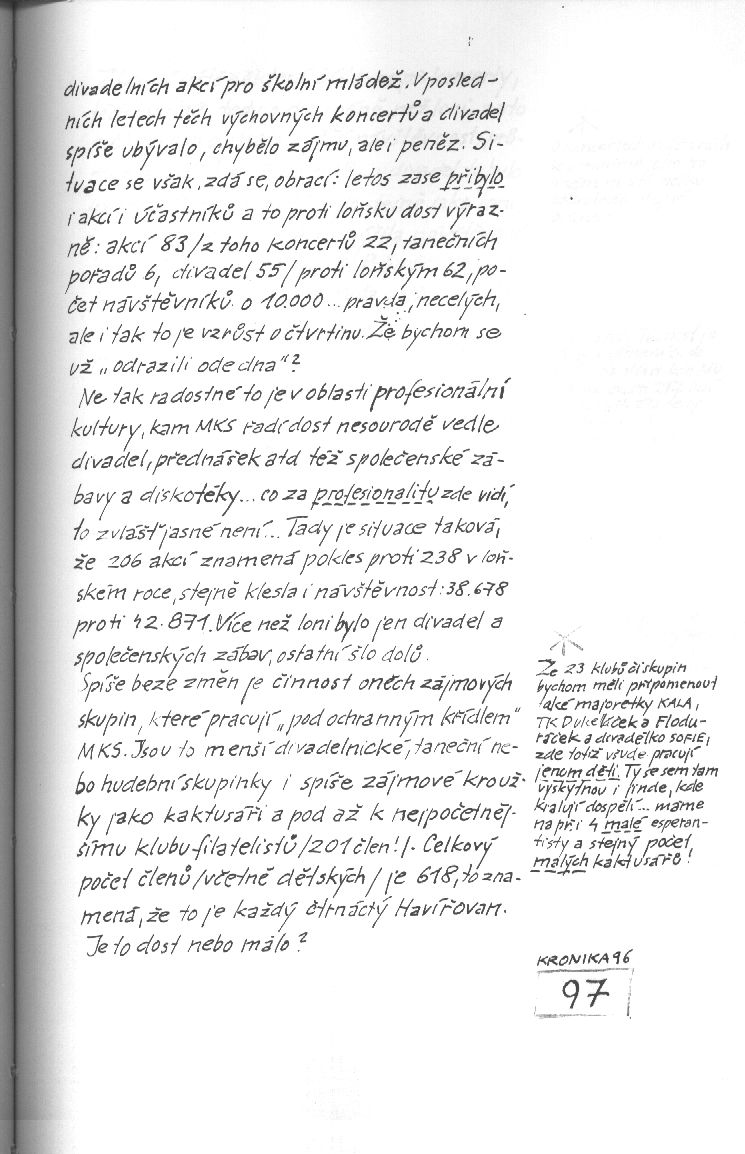 divadelních akcí pro školní mládež. V posled-
ních letech těch výchovných koncertů a divadel
spíše ubývalo, chybělo zájmu, ale i peněz. Si-
tuace se však, zdá se, obrací: letos zase přibylo
i akcí i účastníků a to proti loňsku dost výraz-
ně: akcí 83/z toho koncertů 22, tanečních
pořadů 6, divadel 55/proti loňským 62, po-
čet návštěvníků o 10.000... pravda, necelých,
ale i tak to je vzrůst o čtvrtinu. Že bychom se
už „odrazili ode dna"?
Ne tak radostné to je v oblasti profesionální
kultury, kam MKS řadí dost nesourodě vedle
divadel, přednášek atd též společenské zá-
bavy a diskotéky... co za profesionalitu zde vidí,
to zvlášť jasné není... Tady je situace taková,
že 206 akcí znamená pokles proti 238 v loň-
ském roce, stejně klesla i návštěvnost: 38.678
proti 42.871. Více než loni bylo jen divadel a
společenských zábav, ostatní šlo dolů.
Spíše beze změn je činnost oněch zájmových
skupin, které pracují „pod ochranným křídlem"
MKS. Jsou to menší divadelnické, taneční ne-
bo hudební skupinky i spíše zájmové krouž-
ky jako kaktusáři a pod až k nejpočetněj-
šímu klubu-filatelistů/201 člen!/. Celkový
počet členů/včetně dětských/ je 618, to zna-
mená, že to je každý čtrnáctý Havířovan.
Je to dost nebo málo?
Ze 23 klubů či skupin
bychom měli připomenout
také majoretky KALA,
TK Dukelíček a Flodu-
ráček a divadélko SOFIE,
zde totiž všude pracují
jenom děti. Ty se sem tam
vyskytnou i jinde, kde
kralují dospělí... máme
např i 4 malé esperan-
tisty a stejný počet
malých kaktusářů!
KRONIKA 96
97